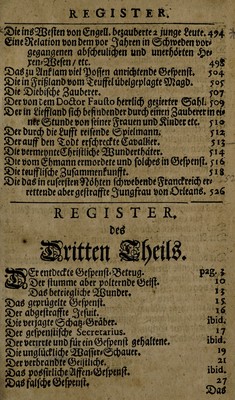 REGISTER.
Die ins Westen von Engell. bezauberte 2 junge Leute. 494
Eine Relation von dem vor Jahren in Schweden vor-
gegangenen abscheulichen und unerhörten He-
xen-Wesen / etc. 498
Das zu Anklam viel Possen anrichtende Gespenst. 504
Die in Frießland vom Teuffel übelgeplagte Magd. 505
Die Diebische Zauberer. 507
Der von dem Doctor Fausto herrlich gezierter Sahl. 509
Der in Lieffland sich befindender durch einen Zauberer in ei-
ne Stunde von seiner Frauen und Kinder etc. 510
Der durch die Lufft reisende Spielmann. 512
Der auff den Todt erschreckte Cavallier. 513
Die vermeynte Christliche Wunderthäter. 514
Die vom Ehmann ermordete und solches in Gespenst. 516
Die teufflische Zusammenkunfft. 518
Die das in eusersten Nöhten schwebende Franckreich er-
rettende aber gestraffte Jungfrau von Orleans. 526
REGISTER.
des
Dritten Theils.
DEr entdeckte Gespenst-Betrug. pag. 3.
Der stumme aber polternde Geist. 10
Das betriegliche Wunder. 13
Das geprügelte Gespenst. 15
Der abgestraffte Jesuit. 16
Die verjagte Schatz-Gräber. ibid.
Der gespenstische Secretarius. 17
Der verirrte und für ein Gespenst gehaltene. ibid.
Die unglückliche Wasser-Schauer. 19
Der verbrandte Geistliche. 21
Das possierliche Affen-Gespenst. ibid.
Das falsche Gespenst. 27
Das